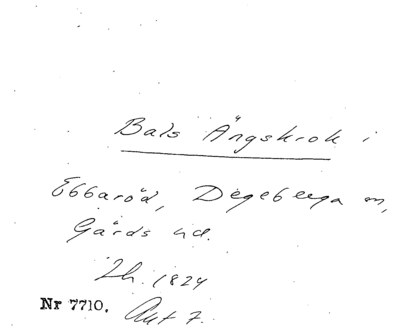 Bals Ängskrok i
Ebbaröd, Degeberga sn,
Gärds hd.
Lh. 1824
Nr 7710. Akt 7.